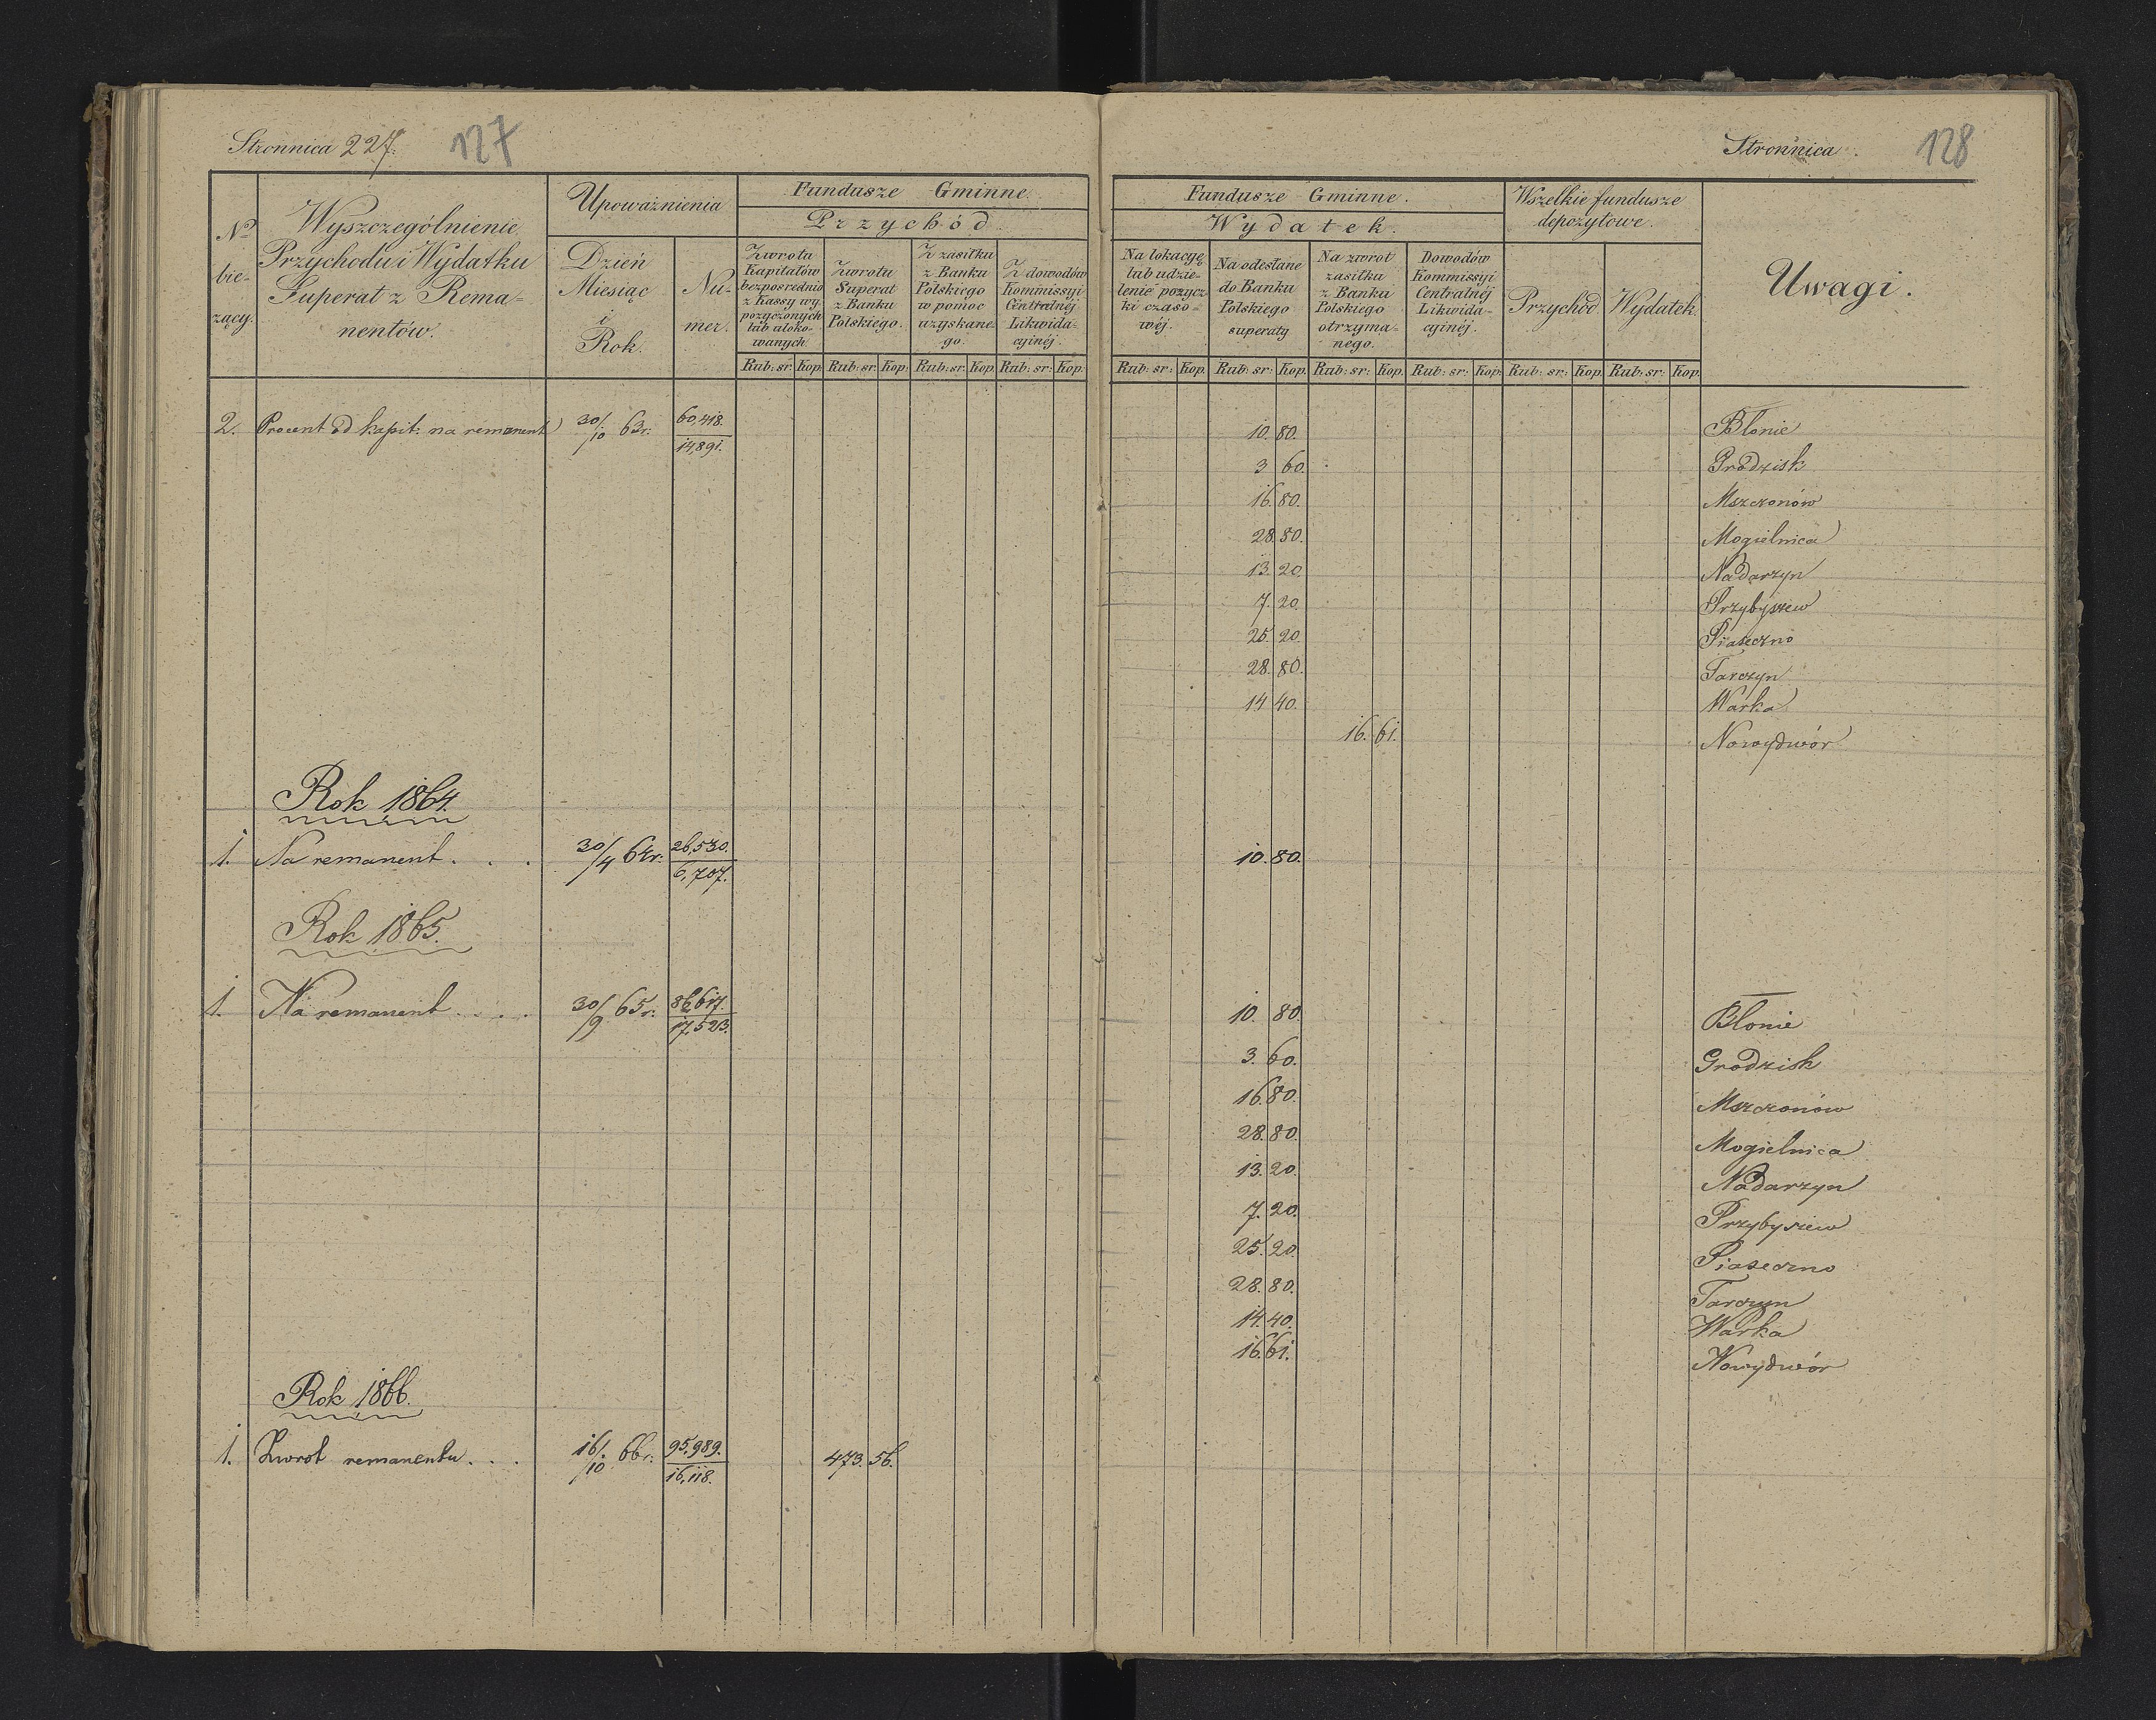 Stronnica 227. 127
Nº bie-zący.
Wyszczególnienie
Przychodu i Wydatku
Superat z Rema-
nentów.
Upoważnienia
Dzień
Miesiąc
i
Rok.
Nu-
mer.
Fundusze Gminne.
Przychód.
Zwrotu
Kapitałów
bezpośrednio
z Kassy wy
pożyczonych
lub uloko-
wanych
Zwrotu
Superat
z Banku
Polskiego.
Z zasiłku
z Banku
Polskiego
w pomoc
uzyskane-
go.
Z dowodów
Kommissyi
Centralnéj
Likwida-
cyinéj.
Rub: sr: Kop. Rub: sr: Kop: Rub: sr: Kop. Rub: sr: Kop.
2. Procent od kapit: na remanent 30/10 63r. 60,418. / 14,891.
Rok 1864.
1. Na remanent . . . 30/4 64r. 26,530. / 6,707.
Rok 1865.
1. Na remanent . . . . 30/9 65r. 86,617. / 17,523.
Rok 1866.
1. Zwrot remanentu . . . 16/10 66r. 95,989. / 16,118. 473. 56.
Stronnica . 128
Fundusze Gminne.
Wydatek.
Na lokacyę
lub udzie-
lenie pożycz
ki czaso-
wéj.
Na odesłane
do Banku
Polskiego
superaty
Na zwrot
zasiłku
z Banku
Polskiego
otrzyma-
nego.
Dowodów
Kommissyi
Centralnéj
Likwida-
cyinéj.
Wszelkie fundusze
depozytowe.
Przychód. Wydatek.
Uwagi.
Rub: sr: Kop. Rub: sr: Kop. Rub: sr: Kop. Rub: sr: Kop. Rub: sr: Kop. Rub: sr: Kop.
10. 80. Błonie
3 60. Grodzisk
16. 80. Mszczonów
28. 80. Mogielnica
13. 20. Nadarzyn
7. 20. Przybyszew
25. 20. Piaseczno
28. 80. Tarczyn
14 40. Warka
16. 61. Nowydwór
10. 80.
10. 80. Błonie
3. 60. Grodzisk
16. 80. Mszczonów
28. 80. Mogielnica
13. 20. Nadarzyn
7. 20. Przybyszew
25. 20. Piaseczno
28. 80. Tarczyn
14. 40. Warka
16. 61. Nowydwór